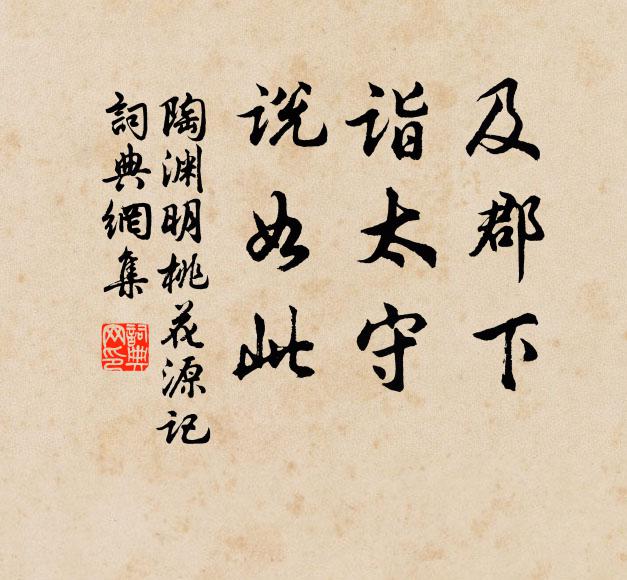 及郡下
诣太守
说如此
陶渊明桃花源记
詞典網集
詞典
网印